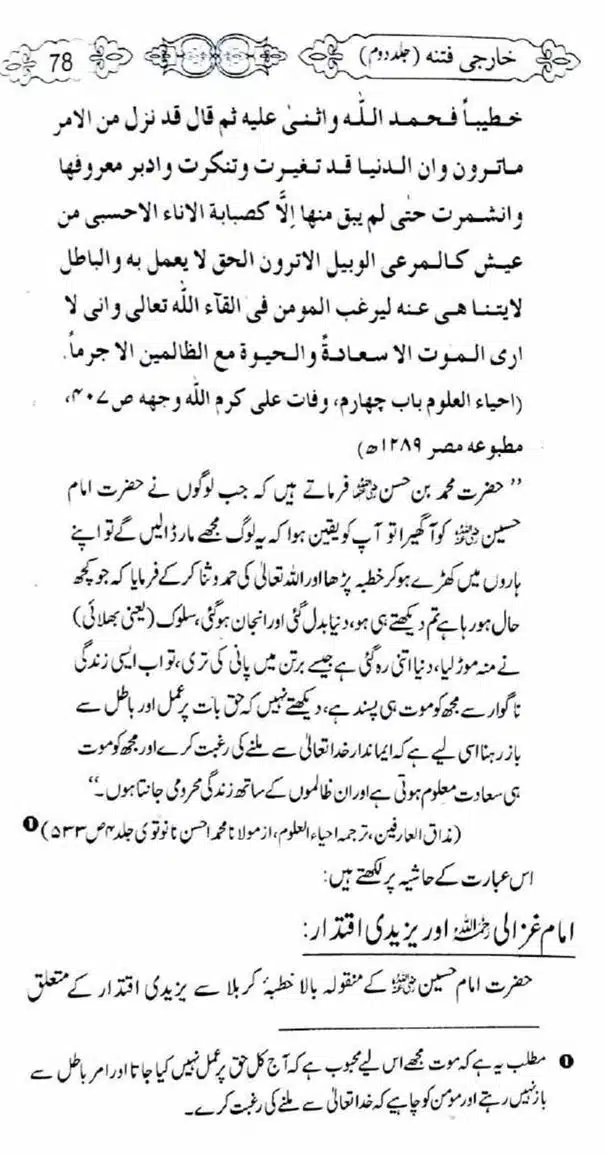 خارجی فتنه (جلد دوم)
78
خطیباً فحمد اللّٰه واثنیٰ علیه ثم قال قد نزل من الامر
ماترون وان الدنیا قد تغیرت وتنکرت وادبر معروفها
وانشمرت حتٰی لم یبق منها اِلَّا کصبابة الاناء الاحسبی من
عیش کالمرعی الوبیل الاترون الحق لا یعمل به والباطل
لایتناهی عنه لیرغب المومن فی القآء اللّٰه تعالی وانی لا
اری الموت الا سعادةً والحیوة مع الظالمین الا جرماً.
(احیاء العلوم باب چهارم، وفات علی کرم اللّٰه وجهه ص۴۰۷،
مطبوعه مصر ۱۲۸۹ھ)
’’حضرت محمد بن حسن رضی اللہ عنہ فرماتے ہیں کہ جب لوگوں نے حضرت امام
حسین رضی اللہ عنہ کو آگھیرا تو آپ کو یقین ہوا کہ یہ لوگ مجھے مار ڈالیں گے تو اپنے
یاروں میں کھڑے ہوکر خطبہ پڑھا اور اللہ تعالیٰ کی حمد و ثنا کرکے فرمایا کہ جو کچھ
حال ہو رہا ہے تم دیکھتے ہی ہو، دنیا بدل گئی اور انجان ہوگئی، سلوک (یعنی بھلائی)
نے منہ موڑ لیا، دنیا اتنی رہ گئی ہے جیسے برتن میں پانی کی تری، تو اب ایسی زندگی
ناگوار سے مجھ کو موت ہی پسند ہے، دیکھتے نہیں کہ حق بات پر عمل اور باطل سے
باز رہنا اسی لیے ہے کہ ایماندار خدا تعالیٰ سے ملنے کی رغبت کرے اور مجھ کو موت
ہی سعادت معلوم ہوتی ہے اور ان ظالموں کے ساتھ زندگی محرومی جانتا ہوں۔‘‘
(مذاق العارفین، ترجمہ احیاء العلوم، از مولانا محمد احسن نانوتوی جلد ۴ ص ۵۳۳) ❶
اس عبارت کے حاشیہ پر لکھتے ہیں:
امام غزالی رحمہ اللہ اور یزیدی اقتدار:
حضرت امام حسین رضی اللہ عنہ کے منقولہ بالا خطبۂ کربلا سے یزیدی اقتدار کے متعلق
❶ مطلب یہ ہے کہ موت مجھے اس لیے محبوب ہے کہ آج کل حق پر عمل نہیں کیا جاتا اور امر باطل سے
باز نہیں رہتے اور مومن کو چاہیے کہ خدا تعالیٰ سے ملنے کی رغبت کرے۔